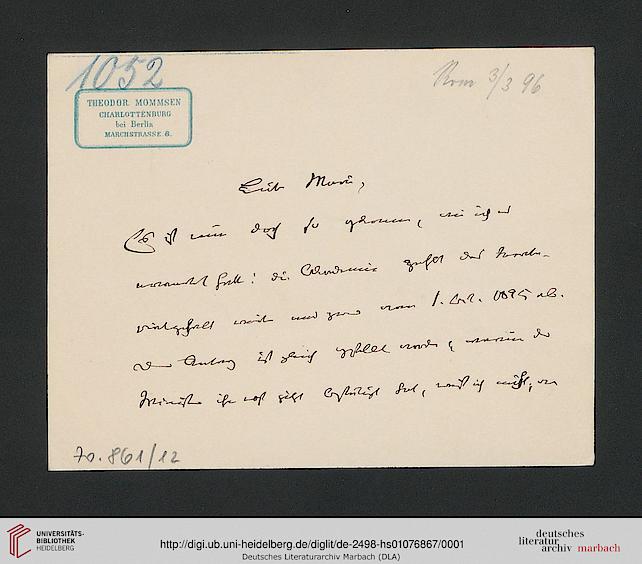 1052
Rom 3/3 96
THEODOR MOMMSEN
CHARLOTTENBURG
bei Berlin
MARCHSTRASSE 8.
Liebe Marie,
Es ist nun doch so gekommen, wie ich es
vorausgesagt: die Academie zahlt das
weiter und zwar vom 1. Oct. 1895 ab.
Der Antrag ist gleich gestellt worden, warum der
Minister ihn erst jetzt bestätigt hat, weiß ich nicht,
70.861/12
UNIVERSITÄTS-
BIBLIOTHEK
HEIDELBERG
http://digi.ub.uni-heidelberg.de/diglit/de-2498-hs01076867/0001
Deutsches Literaturarchiv Marbach (DLA)
deutsches
literatur
archiv marbach